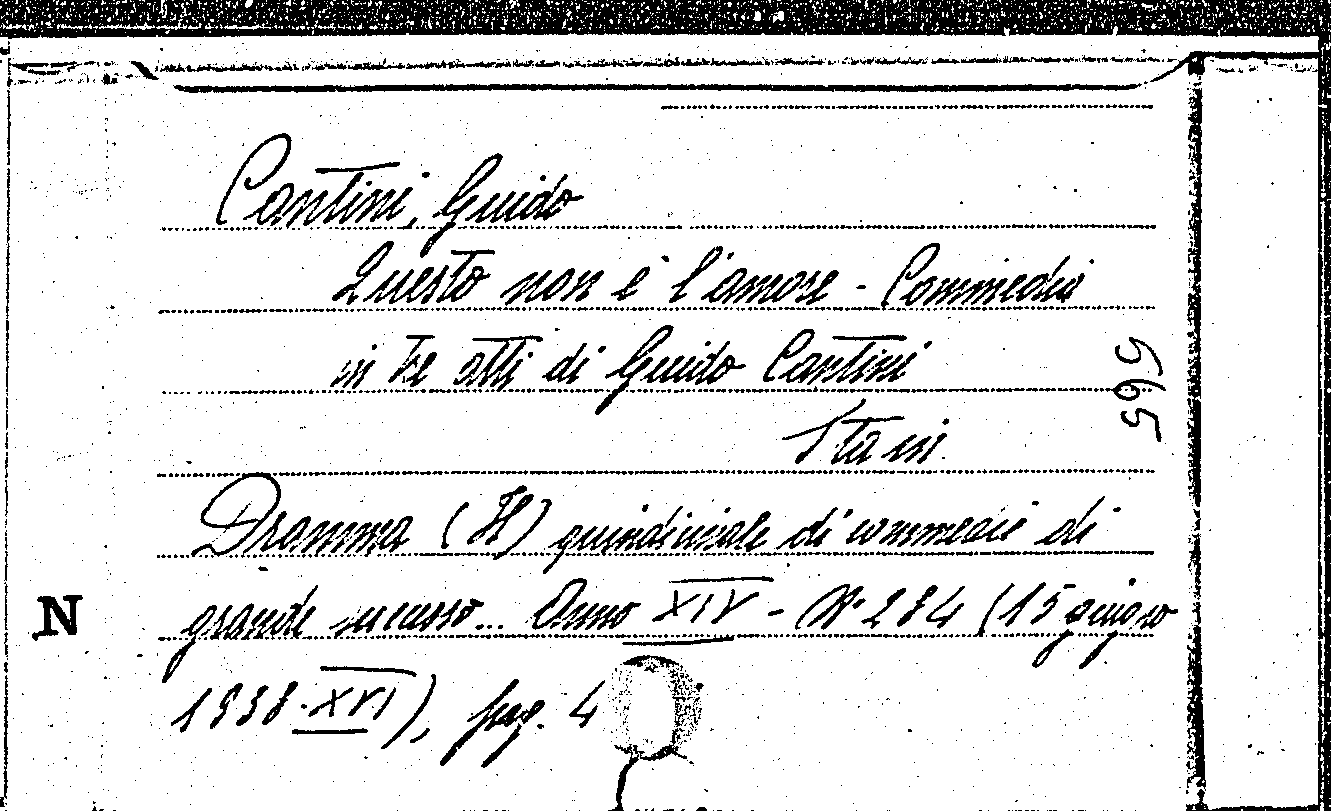 Cantini, Guido
Questo non è l'amore - Commedia
in tre atti di Guido Cantini
565
Sta in:
Dramma (Il) quindicinale di commedie di
grande successo... Anno XIV - N. 284 (15 giugno
N
1938-XVI), pag. 4